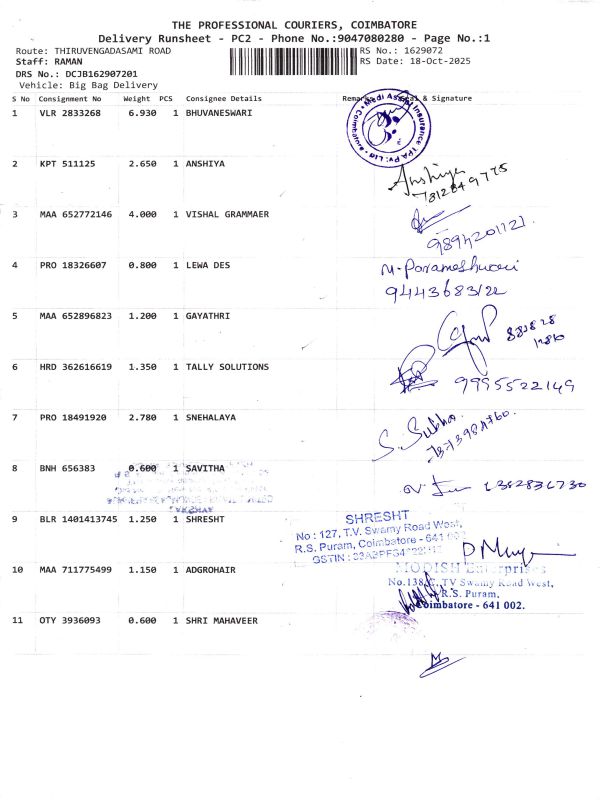 THE PROFESSIONAL COURIERS, COIMBATORE
Delivery Runsheet - PC2 - Phone No.:9047080280 - Page No.:1
Route: THIRUVENGADASAMI ROAD
RS No.: 1629072
Staff: RAMAN
RS Date: 18-Oct-2025
DRS No.: DCJB162907201
Vehicle: Big Bag Delivery
S No Consignment No Weight PCS Consignee Details Remarks Seal & Signature
1 VLR 2833268 6.930 1 BHUVANESWARI
Medi Assist Insurance TPA Pvt. Ltd. Coimbatore
2 KPT 511125 2.650 1 ANSHIYA
Anshiya
7812849775
3 MAA 652772146 4.000 1 VISHAL GRAMMAER
9894201721.
4 PRO 18326607 0.800 1 LEWA DES
M. Parameshwari
9443683122
5 MAA 652896823 1.200 1 GAYATHRI
6 HRD 362616619 1.350 1 TALLY SOLUTIONS
9995522149
7 PRO 18491920 2.780 1 SNEHALAYA
S. Subha.
7373984760.
8 BNH 656383 0.600 1 SAVITHA
6382836730
9 BLR 1401413745 1.250 1 SHRESHT
SHRESHT
No : 127, T.V. Swamy Road West,
R.S. Puram, Coimbatore - 641 002
GSTIN :
10 MAA 711775499 1.150 1 ADGROHAIR
MODISH Enterprises
No.138, TV Swamy Road West,
R.S. Puram,
Coimbatore - 641 002.
11 OTY 3936093 0.600 1 SHRI MAHAVEER